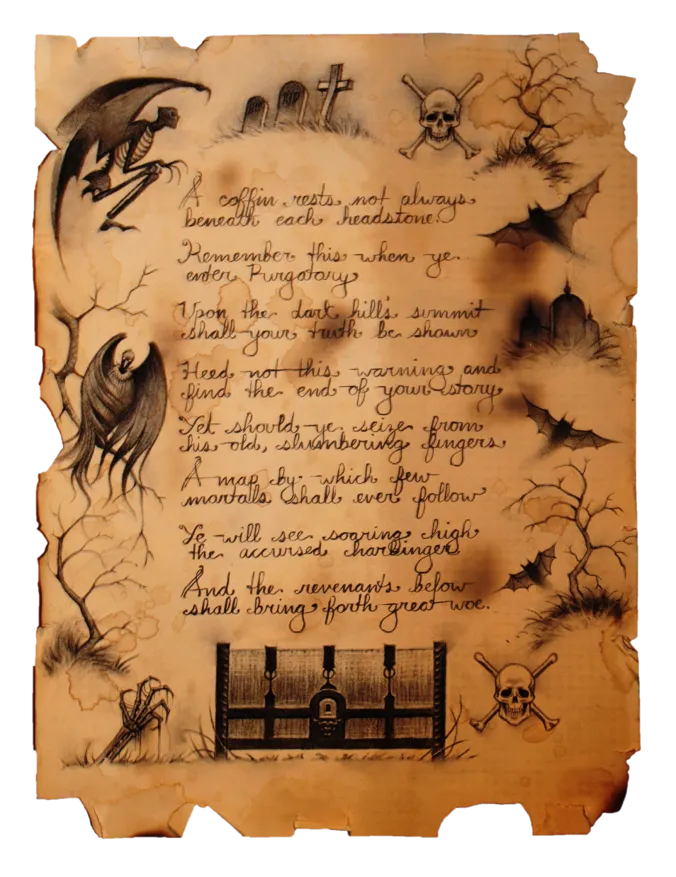 A coffin rests not always
beneath each headstone.
Remember this when ye
enter Purgatory
Upon the dark hill's summit
shall your truth be shown
Heed not this warning and
find the end of your story
Yet should ye seize from
his old, slumbering fingers
A map by which few
mortals shall ever follow
Ye will see soaring high
the accursed harbinger
And the revenants below
shall bring forth great woe.